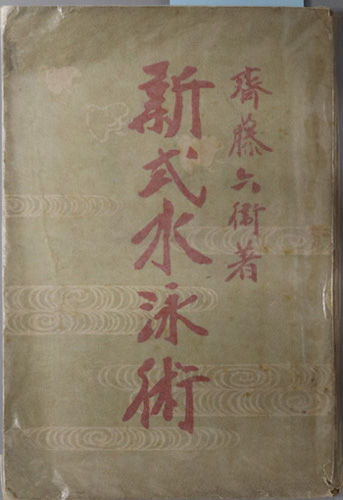 齊藤六衛著
新式水泳術